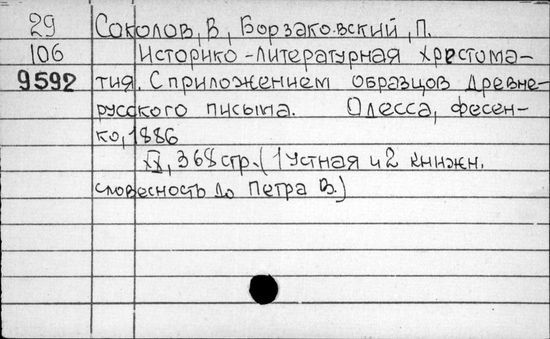 29 Соколов, В, Борзаковский, П.
106 Историко-литературная хрестома-
9592 тия. С приложением образцов древне-
русского письма. Одесса, Фесен-
ко, 1886
XX, 368 стр. (1 Устная и 2 книжн.
словесность до Петра В.)